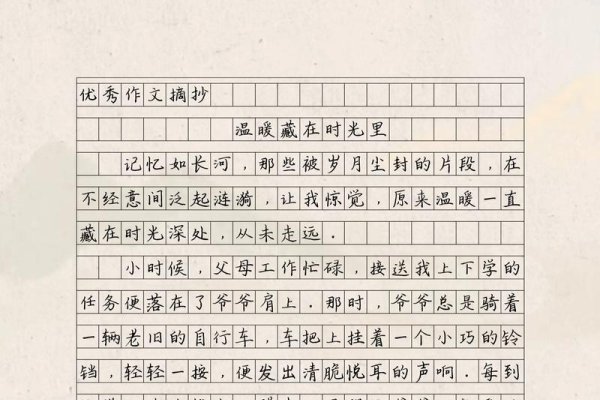 优秀作文摘抄
温暖藏在时光里
记忆如长河，那些被岁月尘封的片段，在
不经意间泛起涟漪，让我惊觉，原来温暖一直
藏在时光深处，从未走远．
小时候，父母工作忙碌，接送我上下学的
任务便落在了爷爷肩上．那时，爷爷总是骑着
一辆老旧的自行车，车把上挂着一个小巧的铃
铛，轻轻一按，便发出清脆悦耳的声响．每到